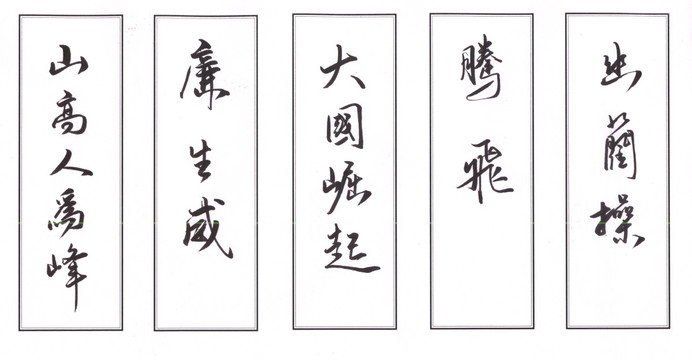 山高人為峰
廉生威
大國崛起
騰飛
幽蘭操